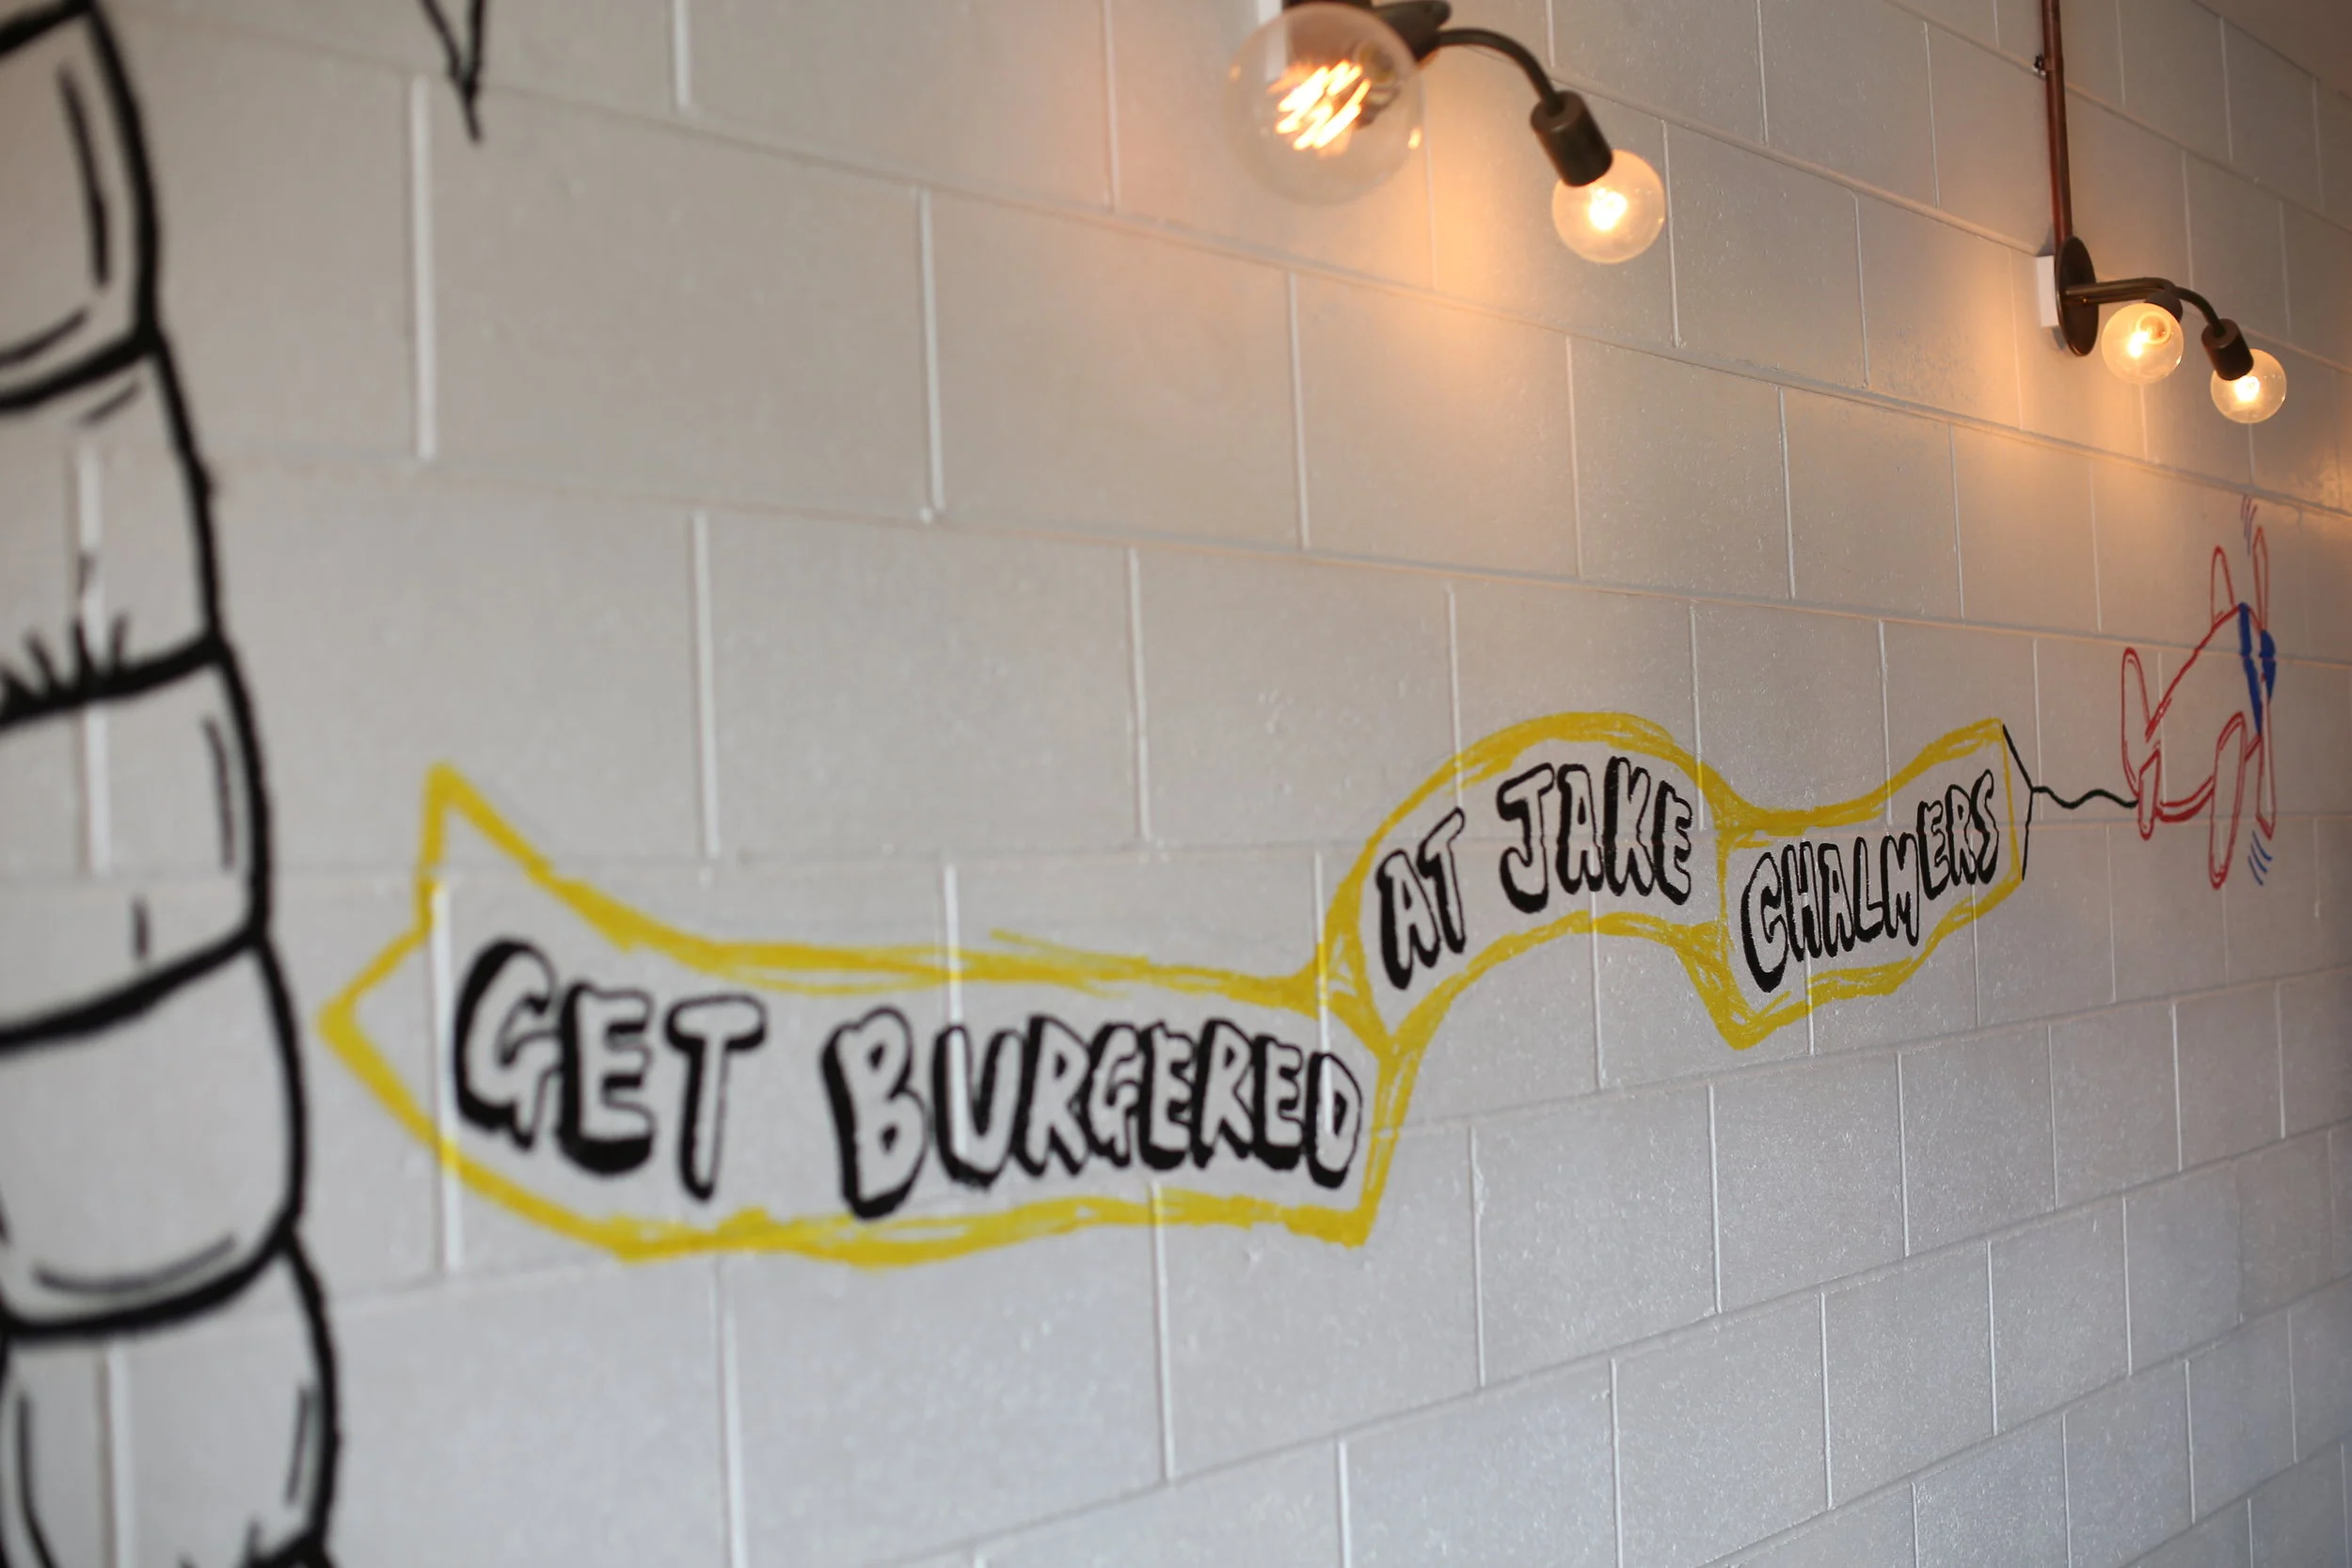 GET BURGERED
AT JAKE
CHALMERS